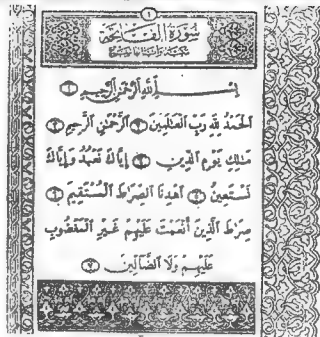 ١
سُورَةُ الفَاتِحَةِ
بِسْمِ اللَّهِ الرَّحْمَٰنِ الرَّحِيمِ ١
الْحَمْدُ لِلَّهِ رَبِّ الْعَالَمِينَ ٢ الرَّحْمَٰنِ الرَّحِيمِ ٣
مَالِكِ يَوْمِ الدِّينِ ٤ إِيَّاكَ نَعْبُدُ وَإِيَّاكَ
نَسْتَعِينُ ٥ اهْدِنَا الصِّرَاطَ الْمُسْتَقِيمَ ٦
صِرَاطَ الَّذِينَ أَنْعَمْتَ عَلَيْهِمْ غَيْرِ الْمَغْضُوبِ
عَلَيْهِمْ وَلَا الضَّالِّينَ ٧